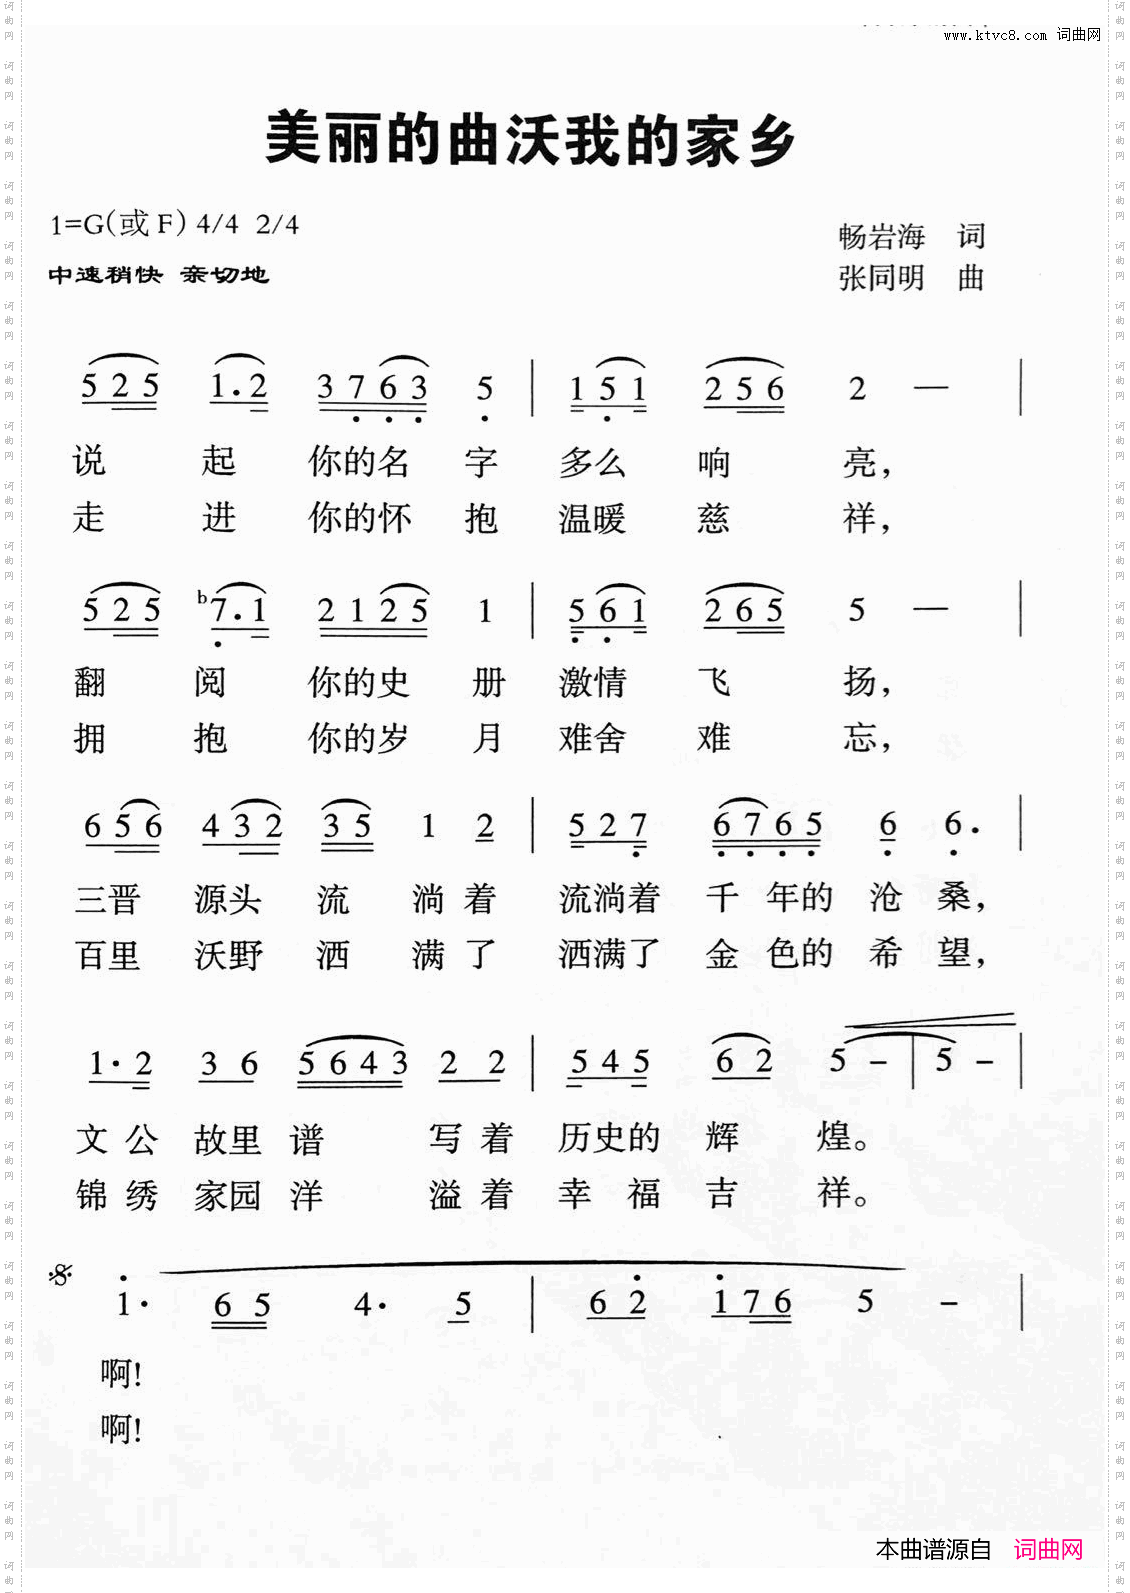 www.ktvc8.com 词曲网
美丽的曲沃我的家乡
1=G(或F) 4/4 2/4
畅岩海 词
中速稍快 亲切地
张同明 曲
5 2 5 1·2 3 7 6 3 5 | 1 5 1 2 5 6 2 — |
说 起 你的名 字 多么 响 亮，
走 进 你的怀 抱 温暖 慈 祥，
5 2 5 ♭7·1 2 1 2 5 1 | 5 6 1 2 6 5 5 — |
翻 阅 你的史 册 激情 飞 扬，
拥 抱 你的岁 月 难舍 难 忘，
6 5 6 4 3 2 3 5 1 2 | 5 2 7 6 7 6 5 6 6· |
三晋 源头 流 淌着 流淌着 千 年的 沧 桑，
百里 沃野 洒 满了 洒满了 金 色的 希 望，
1·2 3 6 5 6 4 3 2 2 | 5 4 5 6 2 5 – | 5 – |
文 公 故里 谱 写着 历史的 辉 煌。
锦 绣 家园 洋 溢着 幸 福 吉 祥。
1· 6 5 4· 5 | 6 2 1 7 6 5 – |
啊!
啊!
本曲谱源自 词曲网